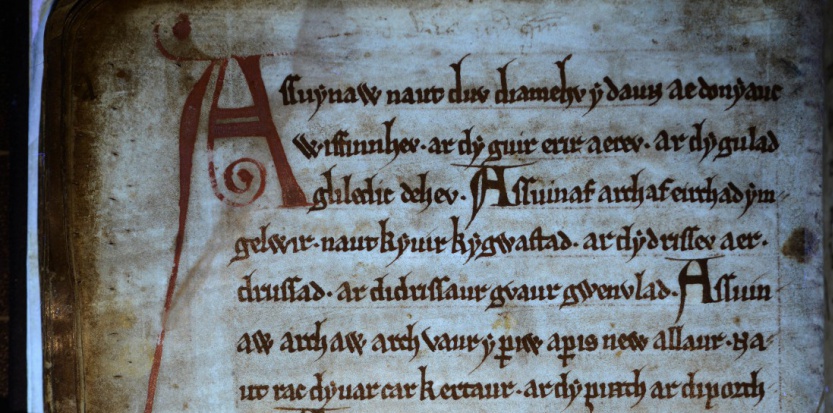 Assuynaw naut duv diamehv y daun ae donyauc
wiffinnhev · ar dy guir erir aerev · ar dy gulad
gliletic dehev · Assuinaf archaf eirchad ym
gelwir · naut kyuir kygwastad · ar dy drissev aer ·
drussad · ar didrissaur gvaur gwenvlad · Assuin
aw archaw arch vaur y periw aperis new allaur · na
ut rac dy uar car kertaur · ar dy pirth ar diporth